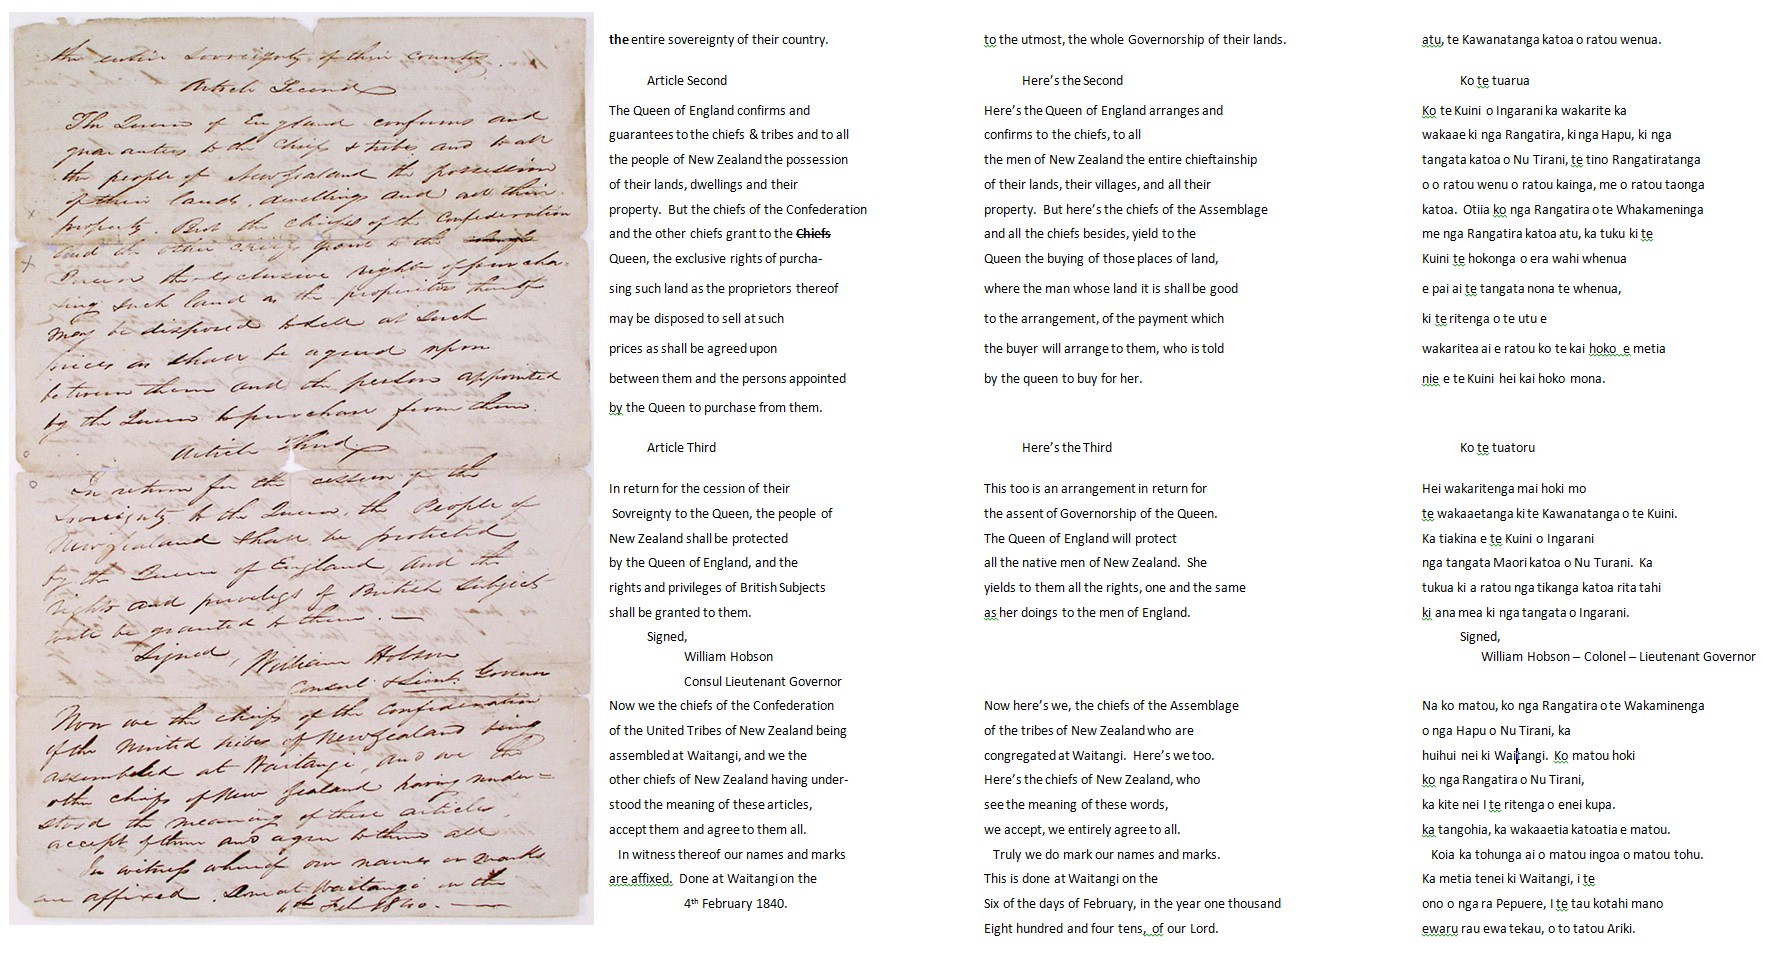 the entire Sovreignty of their country.
Article Second
The Queen of England confirms and
guaranties to the Chiefs & tribes and to all
the people of New Zealand the possession
of their lands, dwellings and all their
property. But the chiefs of the Confederation
and the other chiefs grant to the Chiefs
Queen the exclusive rights of purcha-
sing such land as the proprietors thereof
may be disposed to sell at such
prices as shall be agreed upon
between them and the persons appointed
by the Queen to purchase from them.
Article Third
In return for the cession of the
Sovreignty to the Queen, the People of
New Zealand shall be protected
by the Queen of England and the
rights and privileges of British Subjects
will be granted to them. —
Signed, William Hobson
Consul & Lieut. Governor
Now we the chiefs of the Confederation
of the United tribes of New Zealand being
assembled at Waitangi, and we the
other chiefs of New Zealand having under=
stood the meaning of these articles,
accept of them and agree to them all
In witness whereof our names or marks
are affixed. Done at Waitangi on the
4th Feb. 1840. —
the entire sovereignty of their country.
Article Second
The Queen of England confirms and
guarantees to the chiefs & tribes and to all
the people of New Zealand the possession
of their lands, dwellings and their
property. But the chiefs of the Confederation
and the other chiefs grant to the Chiefs
Queen, the exclusive rights of purcha-
sing such land as the proprietors thereof
may be disposed to sell at such
prices as shall be agreed upon
between them and the persons appointed
by the Queen to purchase from them.
Article Third
In return for the cession of their
Sovreignty to the Queen, the people of
New Zealand shall be protected
by the Queen of England, and the
rights and privileges of British Subjects
shall be granted to them.
Signed,
William Hobson
Consul Lieutenant Governor
Now we the chiefs of the Confederation
of the United Tribes of New Zealand being
assembled at Waitangi, and we the
other chiefs of New Zealand having under-
stood the meaning of these articles,
accept them and agree to them all.
In witness thereof our names and marks
are affixed. Done at Waitangi on the
4th February 1840.
to the utmost, the whole Governorship of their lands.
Here's the Second
Here's the Queen of England arranges and
confirms to the chiefs, to all
the men of New Zealand the entire chieftainship
of their lands, their villages, and all their
property. But here's the chiefs of the Assemblage
and all the chiefs besides, yield to the
Queen the buying of those places of land,
where the man whose land it is shall be good
to the arrangement, of the payment which
the buyer will arrange to them, who is told
by the queen to buy for her.
Here's the Third
This too is an arrangement in return for
the assent of Governorship of the Queen.
The Queen of England will protect
all the native men of New Zealand. She
yields to them all the rights, one and the same
as her doings to the men of England.
Now here's we, the chiefs of the Assemblage
of the tribes of New Zealand who are
congregated at Waitangi. Here's we too.
Here's the chiefs of New Zealand, who
see the meaning of these words,
we accept, we entirely agree to all.
Truly we do mark our names and marks.
This is done at Waitangi on the
Six of the days of February, in the year one thousand
Eight hundred and four tens, of our Lord.
atu, te Kawanatanga katoa o ratou wenua.
Ko te tuarua
Ko te Kuini o Ingarani ka wakarite ka
wakaae ki nga Rangatira, ki nga Hapu, ki nga
tangata katoa o Nu Tirani, te tino Rangatiratanga
o o ratou wenu o ratou kainga, me o ratou taonga
katoa. Otiia ko nga Rangatira o te Whakameninga
me nga Rangatira katoa atu, ka tuku ki te
Kuini te hokonga o era wahi whenua
e pai ai te tangata nona te whenua,
ki te ritenga o te utu e
wakaritea ai e ratou ko te kai hoko e metia
nie e te Kuini hei kai hoko mona.
Ko te tuatoru
Hei wakaritenga mai hoki mo
te wakaaetanga ki te Kawanatanga o te Kuini.
Ka tiakina e te Kuini o Ingarani
nga tangata Maori katoa o Nu Turani. Ka
tukua ki a ratou nga tikanga katoa rita tahi
ki ana mea ki nga tangata o Ingarani.
Signed,
William Hobson – Colonel – Lieutenant Governor
Na ko matou, ko nga Rangatira o te Wakaminenga
o nga Hapu o Nu Tirani, ka
huihui nei ki Waitangi. Ko matou hoki
ko nga Rangatira o Nu Tirani,
ka kite nei I te ritenga o enei kupa.
ka tangohia, ka wakaaetia katoatia e matou.
Koia ka tohunga ai o matou ingoa o matou tohu.
Ka metia tenei ki Waitangi, i te
ono o nga ra Pepuere, I te tau kotahi mano
ewaru rau ewa tekau, o to tatou Ariki.